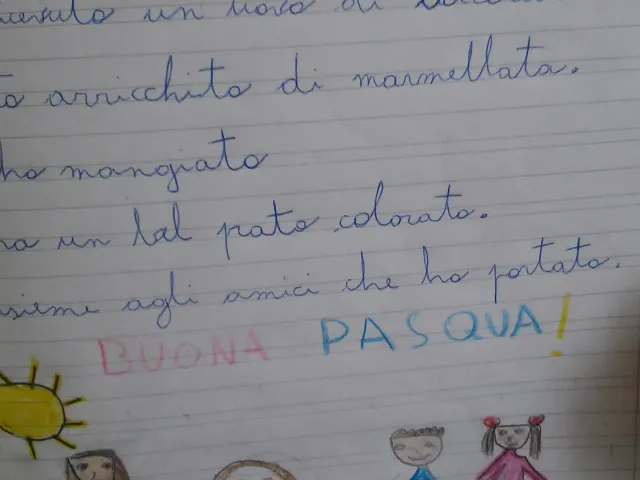 un uovo di
arricchito di marmellata.
ho mangiato
un bel prato colorato.
agli amici che ho portato.
BUONA PASQUA!